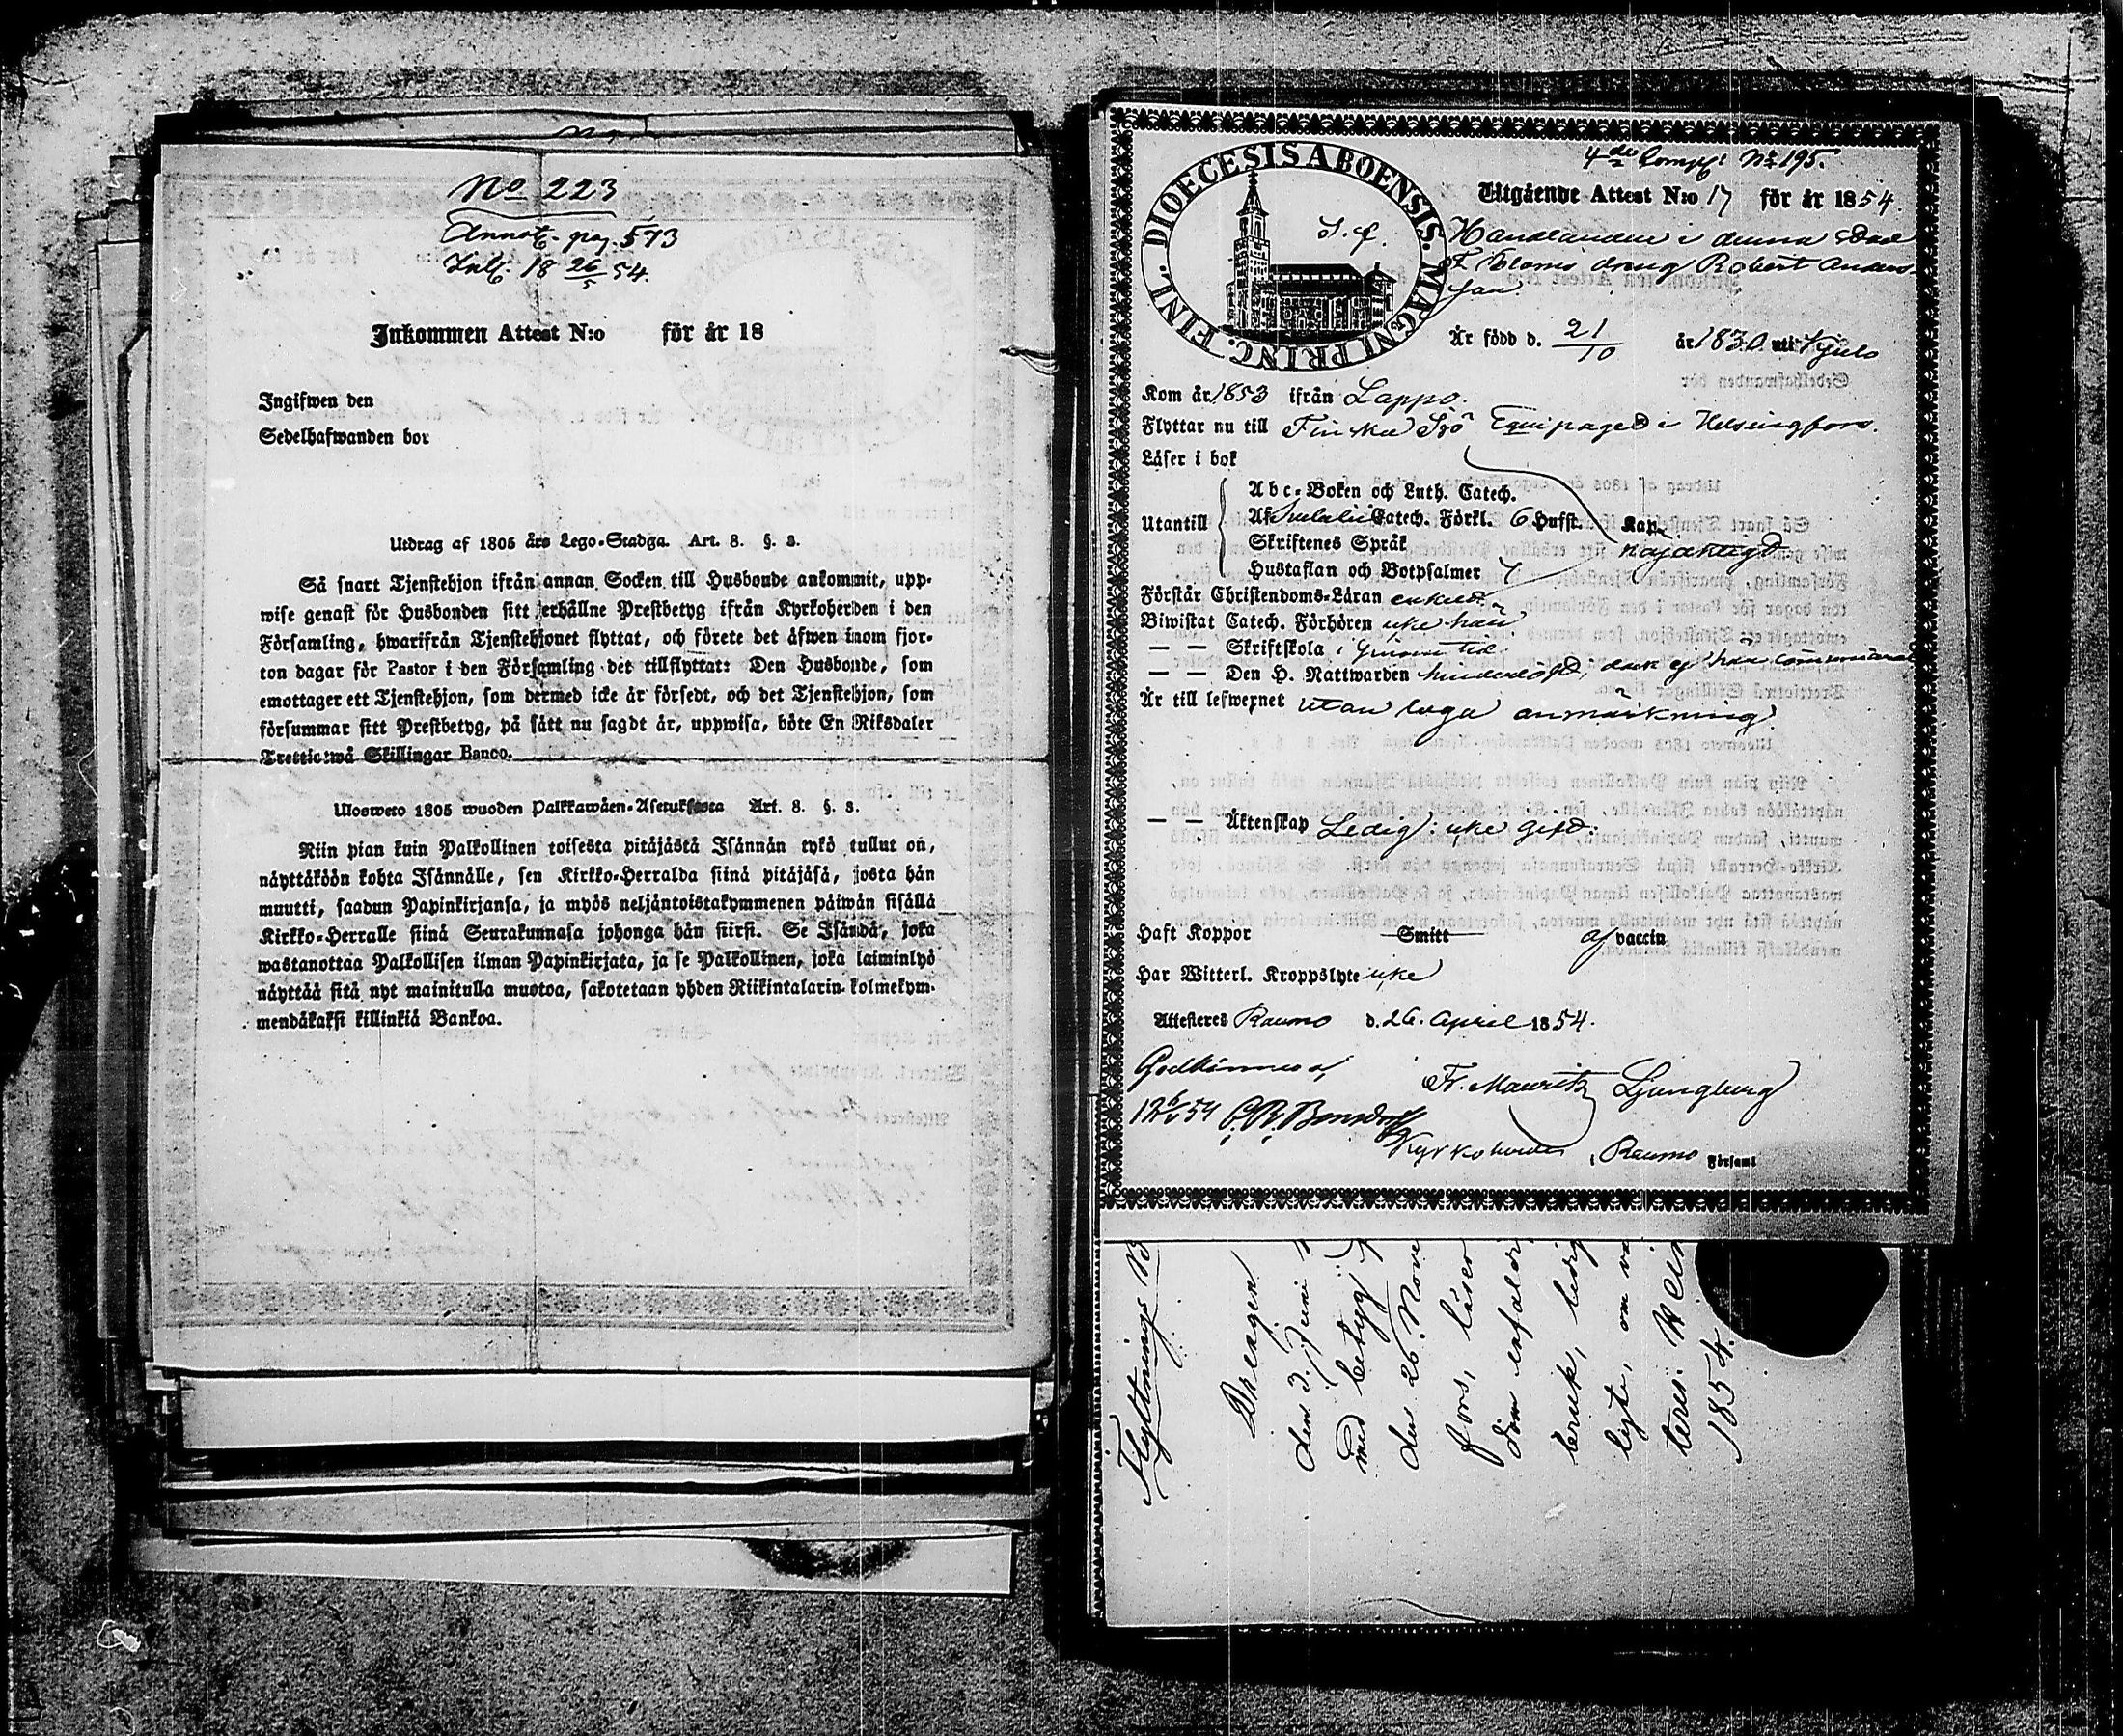 No 223
Annot. pag. 573
Inl. 18 26/5 54.
Inkommen Attest N:o för år 18
Ingifwen den
Sedelhafwanden bor
Utdrag af 1805 års Lego-Stadga. Art. 8. §. 3.
Så snart Tjenstehjon ifrån annan Socken till Husbonde ankommit, upp-
wise genast för Husbonden sitt erhållne Prestbetyg ifrån Kyrkoherden i den
Församling, hwarifrån Tjenstehjonet flyttat, och förete det äfwen inom fjor-
ton dagar för Pastor i den Församling det tillflyttat: Den Husbonde, som
emottager ett Tjenstehjon, som dermed icke är försedt, och det Tjenstehjon, som
försummar sitt Prestbetyg, på sätt nu sagdt är, uppwisa, böte En Riksdaler
Trettiotwå Skillingar Banco.
Ulosweto 1805 wuoden Palkkawäen-Asetuksesta Art. 8. §. 3.
Niin pian kuin Palkollinen toisesta pitäjästä Isännän tykö tullut on,
näyttäköön kohta Isännälle, sen Kirkko-Herralda siinä pitäjäsä, josta hän
muutti, saadun Papinkirjansa, ja myös neljäntoistakymmenen päiwän sisällä
Kirkko-Herralle siinä Seurakunnasa johonga hän siirsi. Se Isändä, joka
wastanottaa Palkollisen ilman Papinkirjata, ja se Palkollinen, joka laiminlyö
näyttää sitä nyt mainitulla muotoa, sakotetaan yhden Riikintalarin kolmekym-
mendäkaksi killinkiä Bankoa.
FINL. DIOECESIS ABOENSIS. MAGNI PRINC.
4de Comp. No 195.
Utgående Attest N:o 17 för år 1854.
Handlanden i denna Stad
F. Bloms dräng Robert Anders-
son
Är född d. 21/10 år 1830 uti Kjulo
Kom år 1853 ifrån Lappo.
Flyttar nu till Finska Sjö Equipaget i Helsingfors.
Läser i bok
Abc-Boken och Luth. Catech.
Utantill Af Svebelii Catech. Förkl. 6 Hufst. Kap.
nöjaktigt
Skriftenes Språk
Hustaflan och Botpsalmer 7
Förstår Christendoms-Läran enkelt
Biwistat Catech. Förhören icke här
— — Skriftskola i sinom tid
— — Den H. Nattwarden hinderlöst, dock ej här communicerat
Är till lefwernet utan laga anmärkning
— — Äktenskap Ledig: icke gift.
Haft Koppor Smitt af vaccin
Har Witterl. Kroppslyte icke
Attesteres Raumo d. 26. April 1854.
Godkännes af
Fr. Mauritz Ljungberg
12/5 54
Kyrkoherde i Raumo Församl
Flyttnings
Drengen
den 3. Juni
med betyg
den 26. Nov
fors, läser
dom enfaldig
bruk, ledig
lyte, om
teras.
1854.